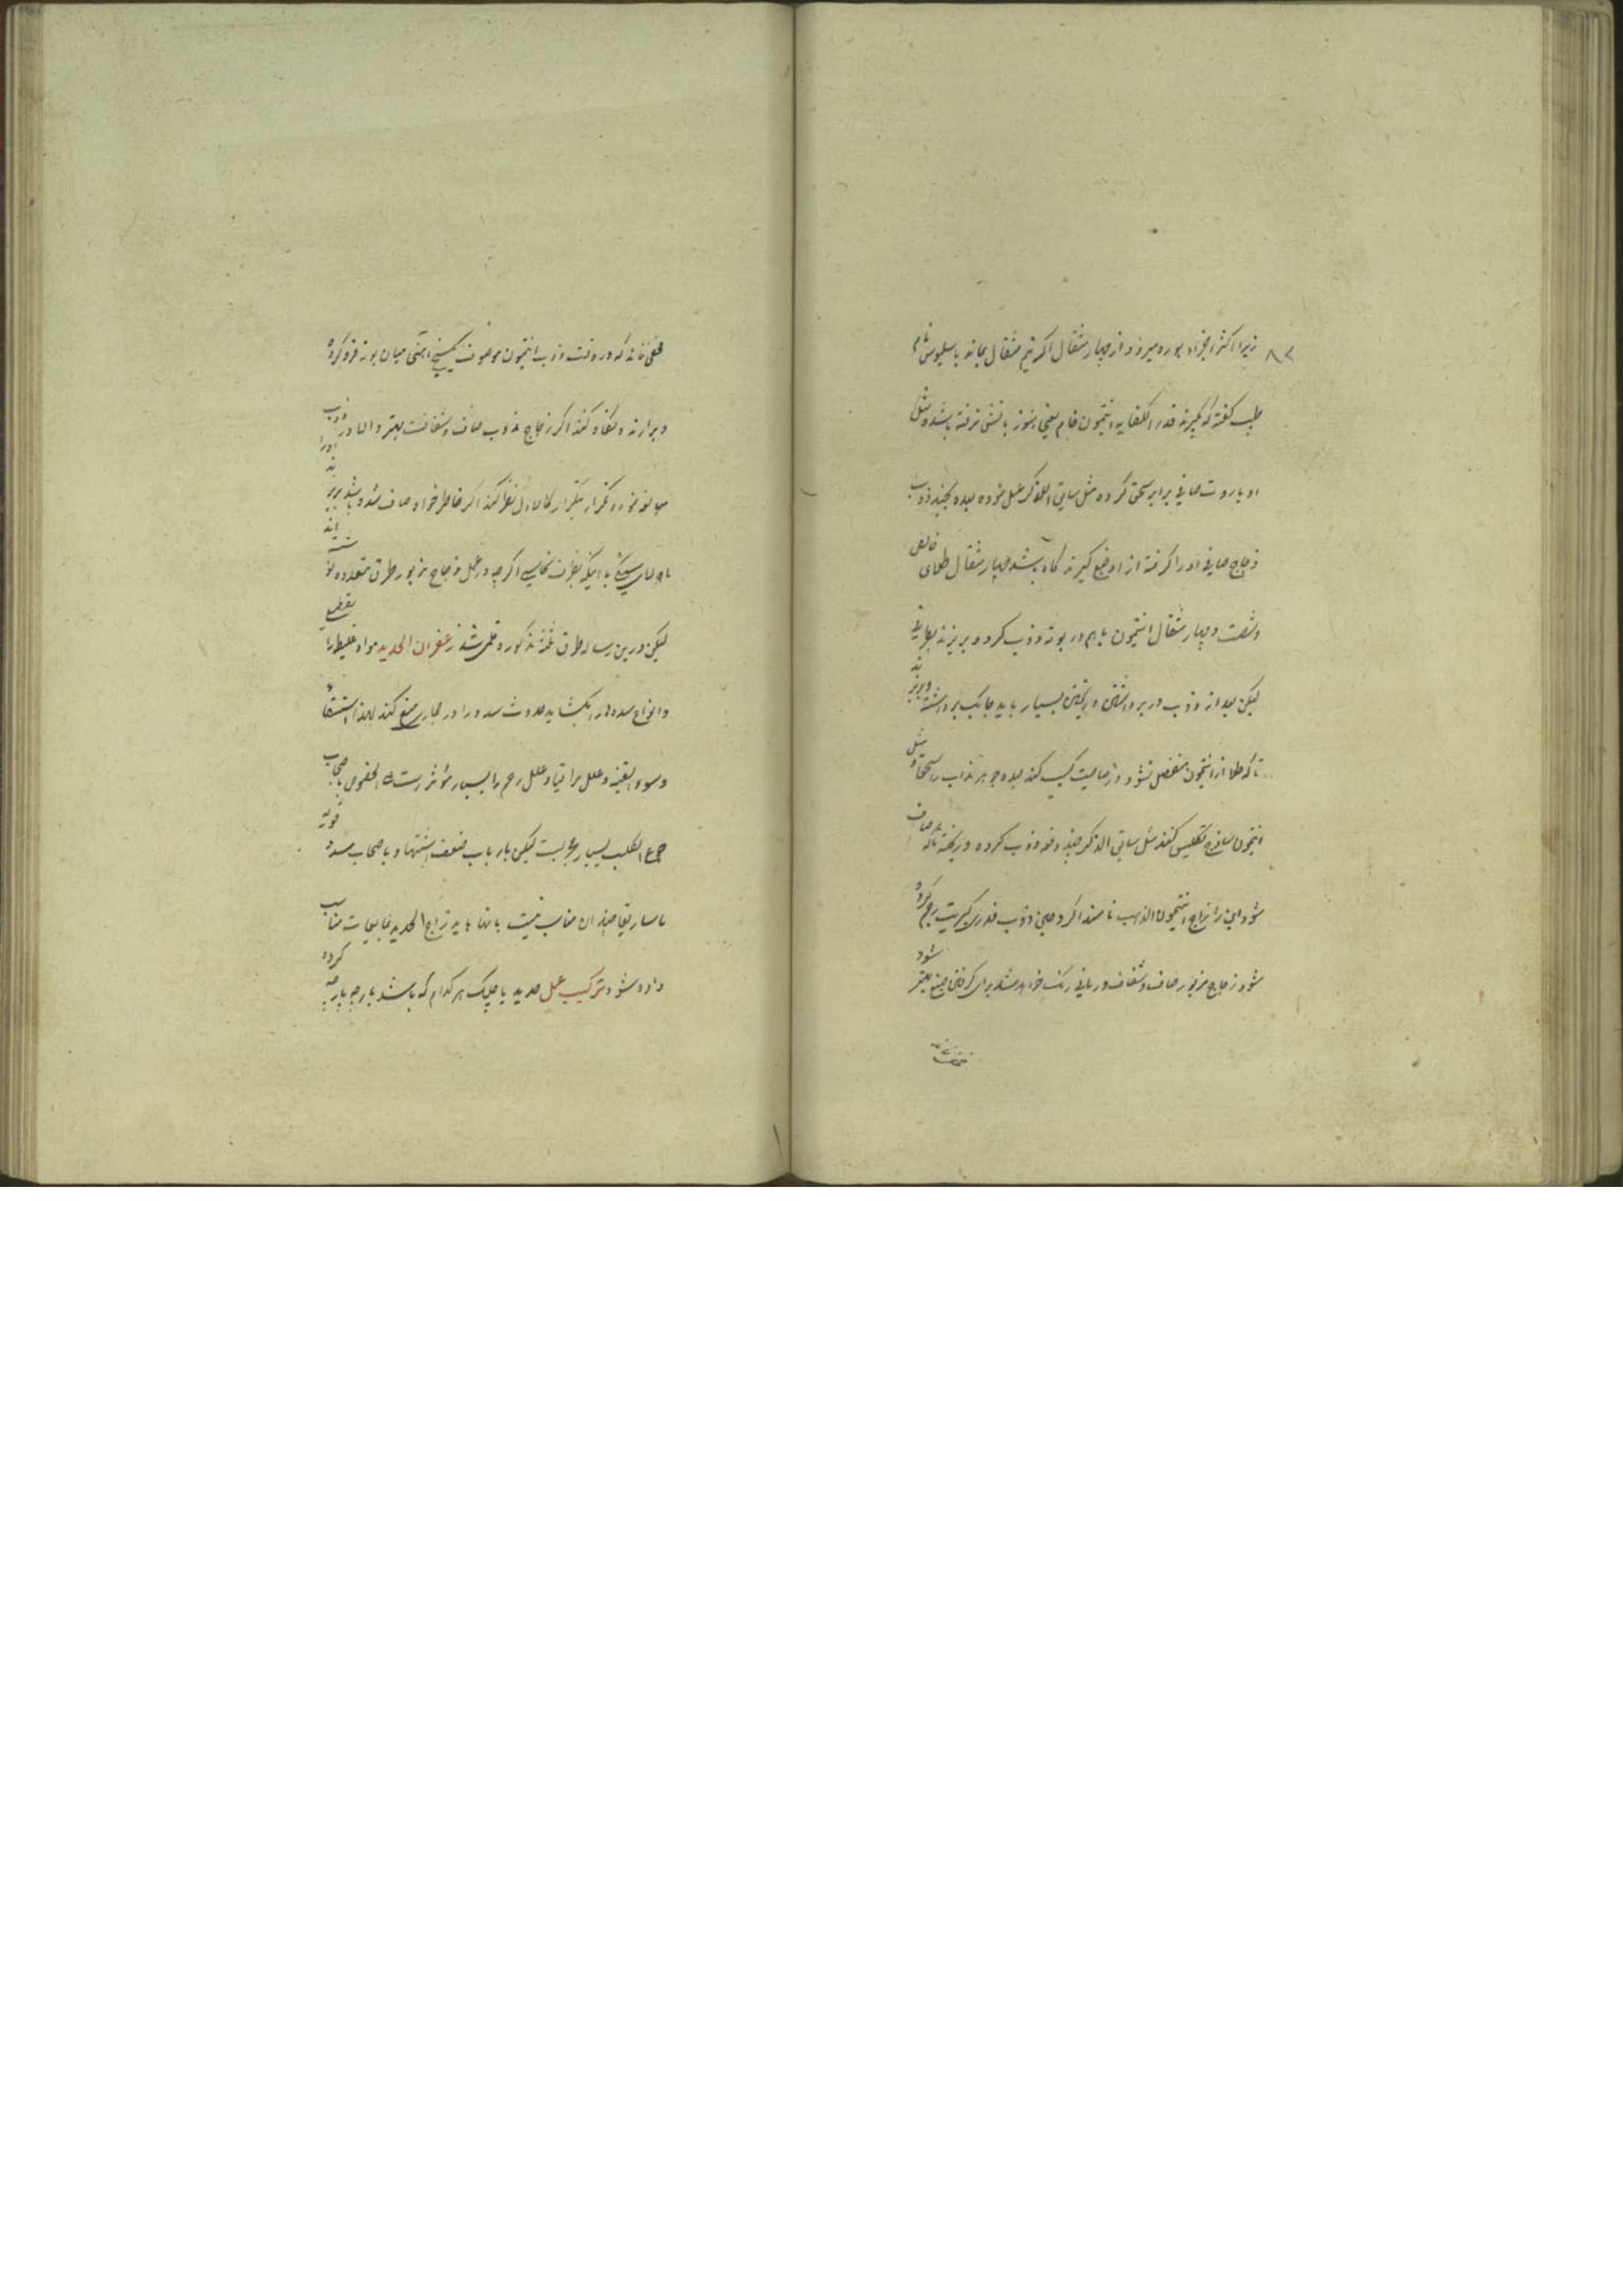 ۸۲
زیرا اکثر اجزاء بوره میرود از چهار مثقال اکر نیم مثقال بماند باسلیوس نام
طبیب کفته که بکیرند قدر الکفایه انتیمون خام یعنی هنوز باتش نرفته باشد و مثل
او باروت صافی برابر سحق کرده مثل سابق الذکر عمل نموده بعده بکیرند ذوب
زجاج صافی او را کرفته از او وضع کیرند کاه باشد چهار مثقال طلای خالص
و شصت و چهار مثقال انتیمون باهم در بوته ذوب کرده بریزند بعاریتی
لیکن بعد از ذوب در برداشتن و ریختن بسیار باید چابک برداشته و بریزند
تا که طلا از انتیمون منفصل نشود و از خاصیت کسب کند بعده جوهر مذاب را سحق و مثل
انتیمون ساذج تکلیس کنند مثل سابق الذکر چند دفعه ذوب کرده و ریخته تا که صاف
شود این را زجاج انتیمون الذهب نامند اکر در حین ذوب قدری کبریت رجم کرده
شود زجاج مزبور صاف و شفاف و رمانی رنک خواهد شد برای کرفتن صبغ بهتر شود
مخفی نماند که در وقت ذوب انتیمون موصوف بسیخ آهنی میان بوته فرو کرده
و برارند و نکاه کنند اکر زجاج مذوب صاف و شفافست بهتر و الا در ذوب او را
نموده تکرار بتکرار کالاول نظر کنند اکر خاطر خواه صاف شده باشد بریزند
بالای سنک یا اینکه بظرف نحاسی اکرچه در عمل زجاج مزبور طرق متعدده نوشته اند
لیکن درین رساله طرق ثلثه مذکوره قلمی شد زعفران الحدید مواد غلیظه را بقطیع
و انواع سدوها را بکشاید حدوث سدد را در مجاری منع کند لهذا استسقاء
و سوء القنیه و علل مراقیا و علل رحم را بسیار مؤثر است الخصوص باصحاب
جوع الکلب بسیار مجربست لیکن بارباب ضعف اشتها و باصحاب سدد قویه
ماساریقا چندان مناسب نیست بانها باید زاج الحدید بمایعات مناسب
داده شود ترکیب عمل حدید یا چلیک هرکدام که باشد پارچه پارچه کرده